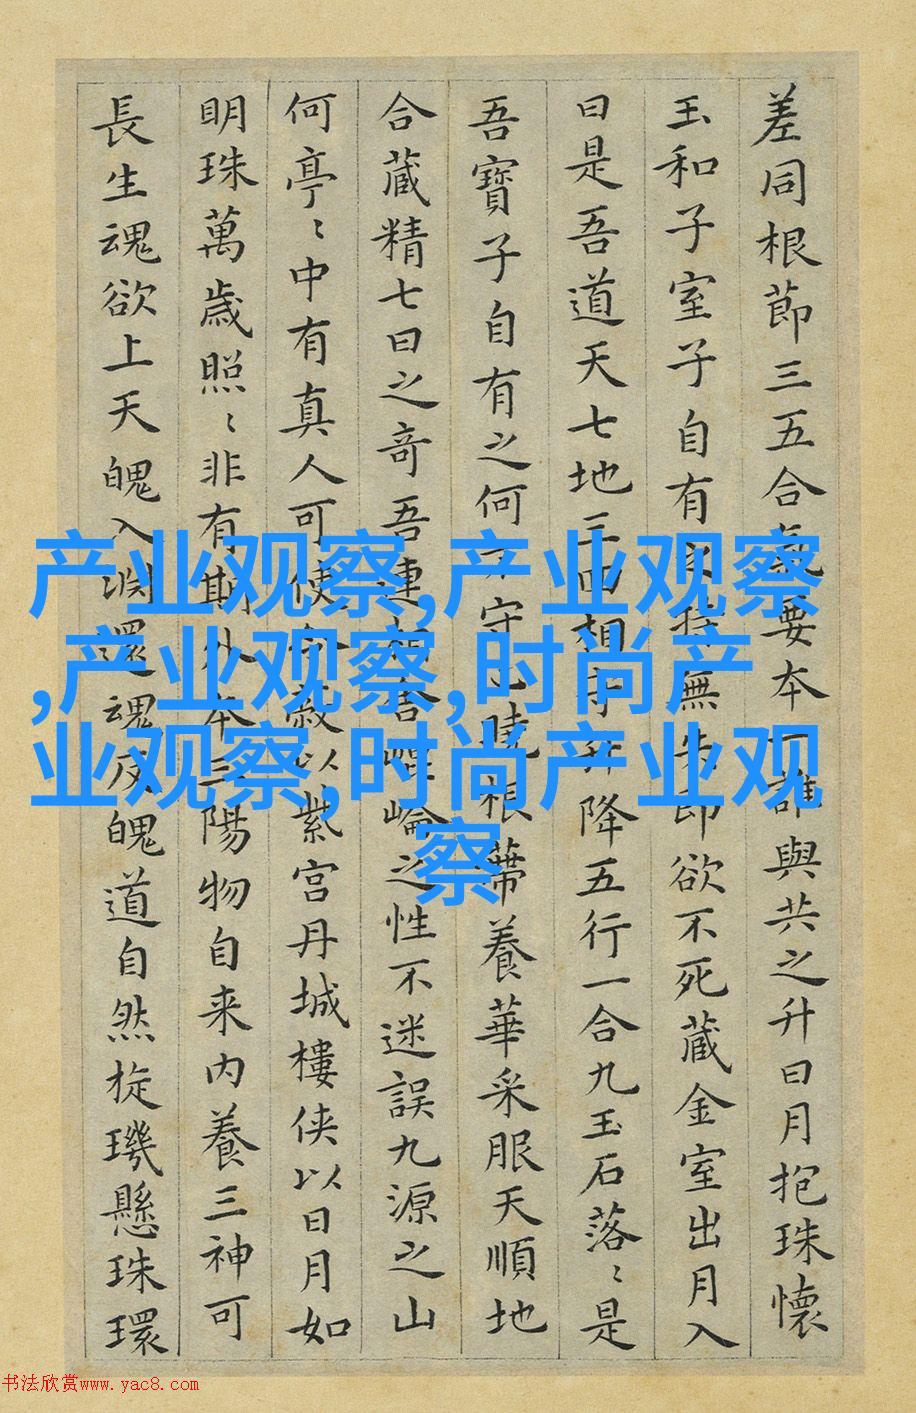 差同根節三五合氣要本一誰與共之升日月抱珠懷
玉和子室子自有之持無失即欲不死藏金室出月入
日是吾道天七地三回相守升降五行一合九玉石落〻是
吾寶子自有之何不守心曉根蔕養華采服天順地
合藏精七日之奇吾連相舍崐崘之性不迷誤九源之山
何亭〻中有真人可使令蔽以紫宮丹城樓侠以日月如
明珠萬歲照〻非有期外本三陽物自来内養三神可
長生魂欲上天魄入淵還魂反魄道自然旋璣懸珠環
产业观察,产业观察
,产业观察,时尚产
业观察,时尚产业观
察
书法欣赏www.yac8.com